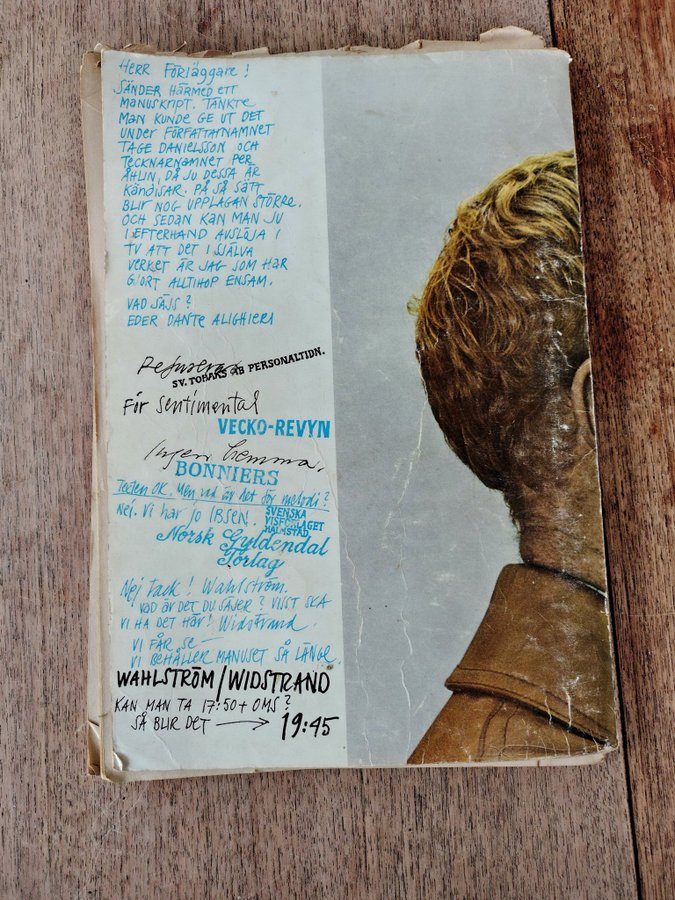 HERR FÖRLÄGGARE!
SÄNDER HÄRMED ETT
MANUSKRIPT. TÄNKTE
MAN KUNDE GE UT DET
UNDER FÖRFATTARNAMNET
TAGE DANIELSSON OCH
TECKNARNAMNET PER
ÅHLIN, DÅ JU DESSA ÄR
KÄNDISAR. PÅ SÅ SÄTT
BLIR NOG UPPLAGAN STÖRRE.
OCH SEDAN KAN MAN JU
I EFTERHAND AVSLÖJA I
TV ATT DET I SJÄLVA
VERKET ÄR JAG SOM HAR
GJORT ALLTIHOP ENSAM.
VAD SÄJS?
EDER DANTE ALIGHIERI
Refuseras
SV. TOBAKS AB PERSONALTIDN.
För sentimental
VECKO-REVYN
Ingen hemma.
BONNIERS
Texten OK. Men vad är det för melodi?
SVENSKA
VISFÖRLAGET
HALMSTAD
Nej. Vi har jo IBSEN.
Norsk Gyldendal
Forlag
Nej tack! Wahlström.
VAD ÄR DET DU SÄJER? VISST SKA
VI HA DET HÄR! Widstrand.
VI FÅR SE —
VI BEHÅLLER MANUSET SÅ LÄNGE.
WAHLSTRÖM/WIDSTRAND
KAN MAN TA 17:50 + OMS?
SÅ BLIR DET → 19:45